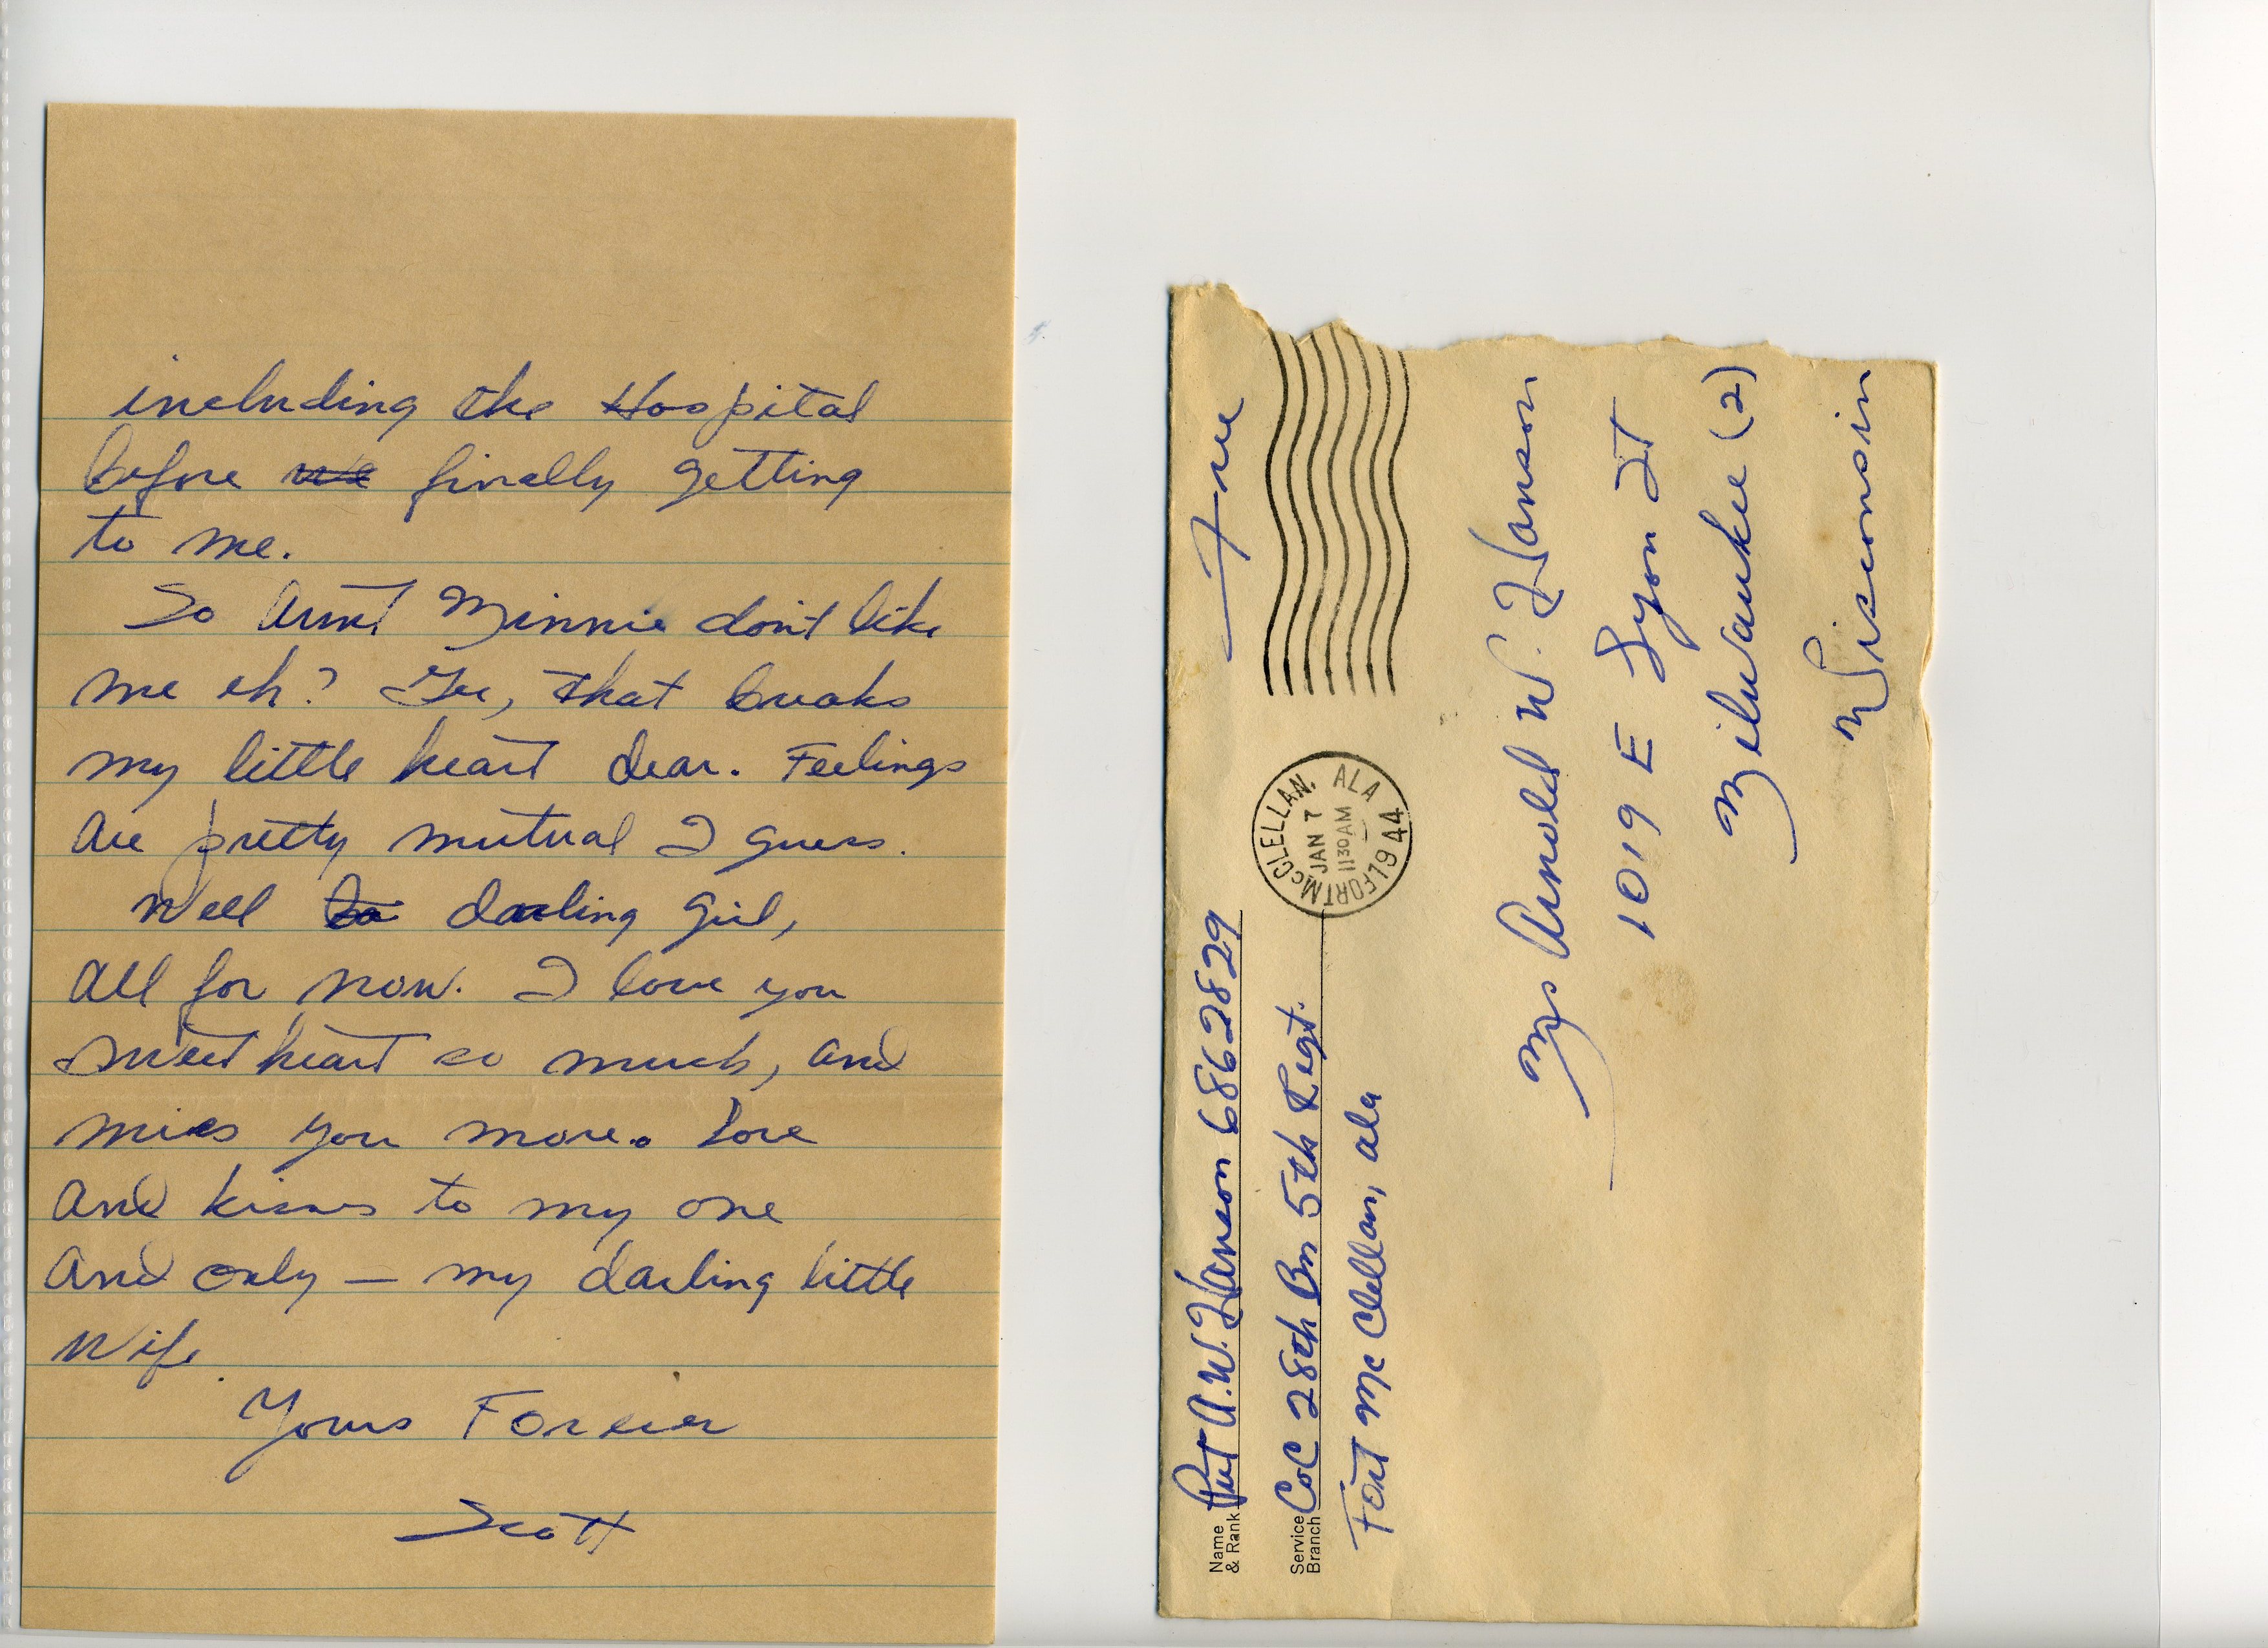 including the Hospital
before we finally getting
to me.
So Aunt Minnie don't like
me eh? Gee, that breaks
my little heart dear. Feelings
are pretty mutual I guess.
Well darling girl,
all for now. I love you
sweetheart so much, and
miss you more. Love
and kisses to my one
and only — my darling little
wife.
Yours Forever
Scott
Name & Rank Pvt A.W. Hanson 6862829
Service Branch Co C 28th Bn 5th Regt.
Fort Mc Clellan, Ala
Free
FORT McCLELLAN, ALA
JAN 7
1130 AM
1944
Mrs Arnold W. Hanson
1019 E Lyon St
Milwaukee (2)
Wisconsin